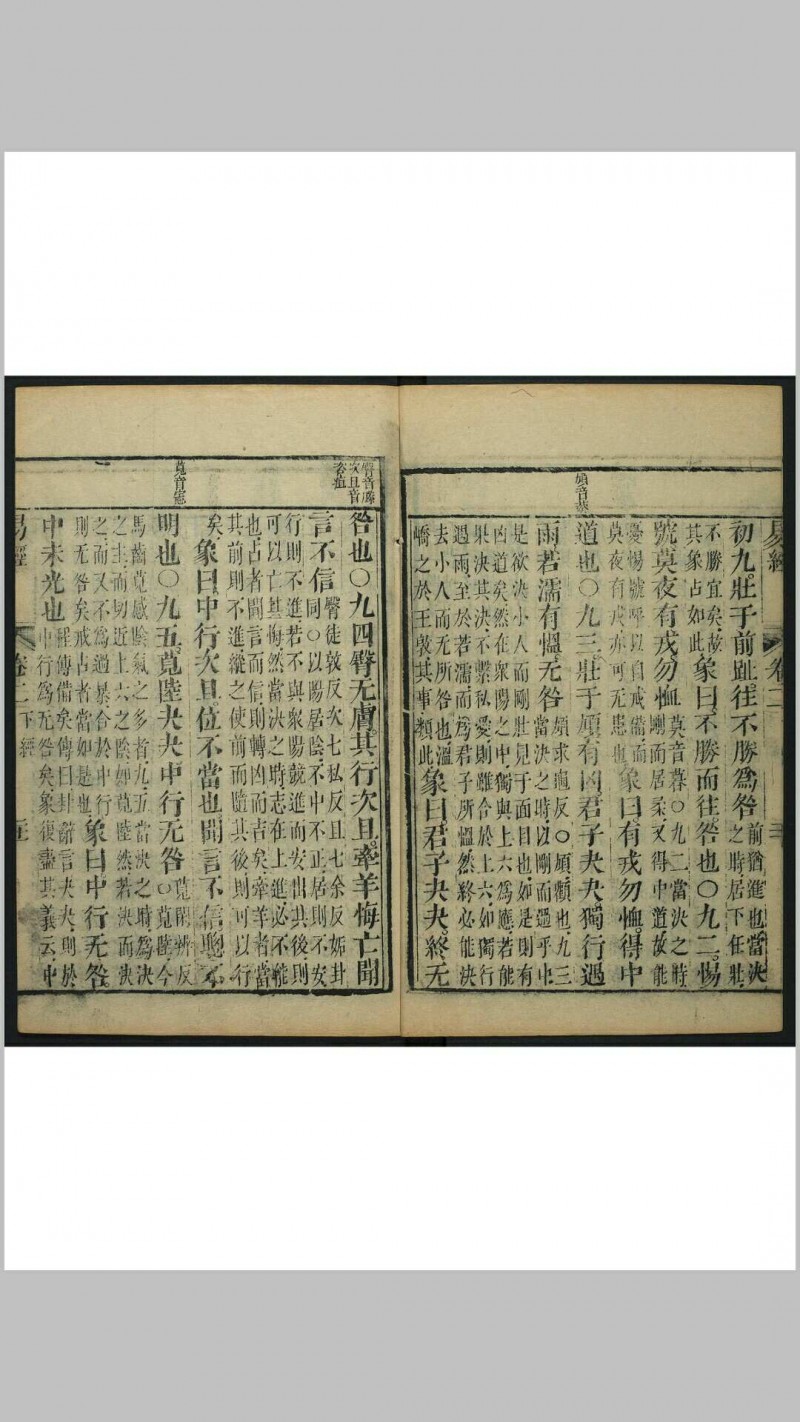 易經 卷二
頄音葵
初九壯于前趾往不勝爲咎
前猶進也當決
之時居下任壯
不勝宜矣故
其象占如此
象曰不勝而往咎也○九二惕
號莫夜有戎勿恤
莫音暮○九二當決之時
剛而居柔又得中道故能
憂惕號呼以自戒備而
莫夜有戎亦可无患也
象曰有戎勿恤得中
道也○九三壯于頄有凶君子夬夬獨行遇
雨若濡有慍无咎
頄求龜反○頄顴也九三
當決之時以剛而過乎中
是欲決小人而剛壯見于面目也如是則有
凶道矣然在衆陽之中獨與上六爲應若能
果決其決不繫私愛則雖合於上六如獨行
遇雨至於若濡而爲君子所慍然終必能決
去小人而无所咎也溫
嶠之於王敦其事類此
象曰君子夬夬終无
臀音豚
次且音
咨疽
咎也○九四臀无膚其行次且牽羊悔亡聞
言不信
臀徒敦反次七私反且七余反姤卦
同○以陽居陰不中不正居則不安
行則不進若不與衆陽競進而安出其後則
可以亡其悔然當決之時志在上進必不能
也占者聞言而信則轉凶而吉矣牽羊者當
其前則不進縱之使前而隨其後則可以行
矣
象曰中行次且位不當也聞言不信聰不
莧音
明也○九五莧陸夬夬中行无咎
莧閑辨反
○莧陸今
馬齒莧感陰氣之多者九五當決之時爲決
之主而切近上六之陰如莧陸然若決而決
之而又不爲過暴合於中行
則无咎矣戒占者當如是也
象曰中行无咎
中未光也
程傳備矣傳曰卦辭言夬夬則於
中行爲无咎矣象復盡其義云中
易經 卷二 下經